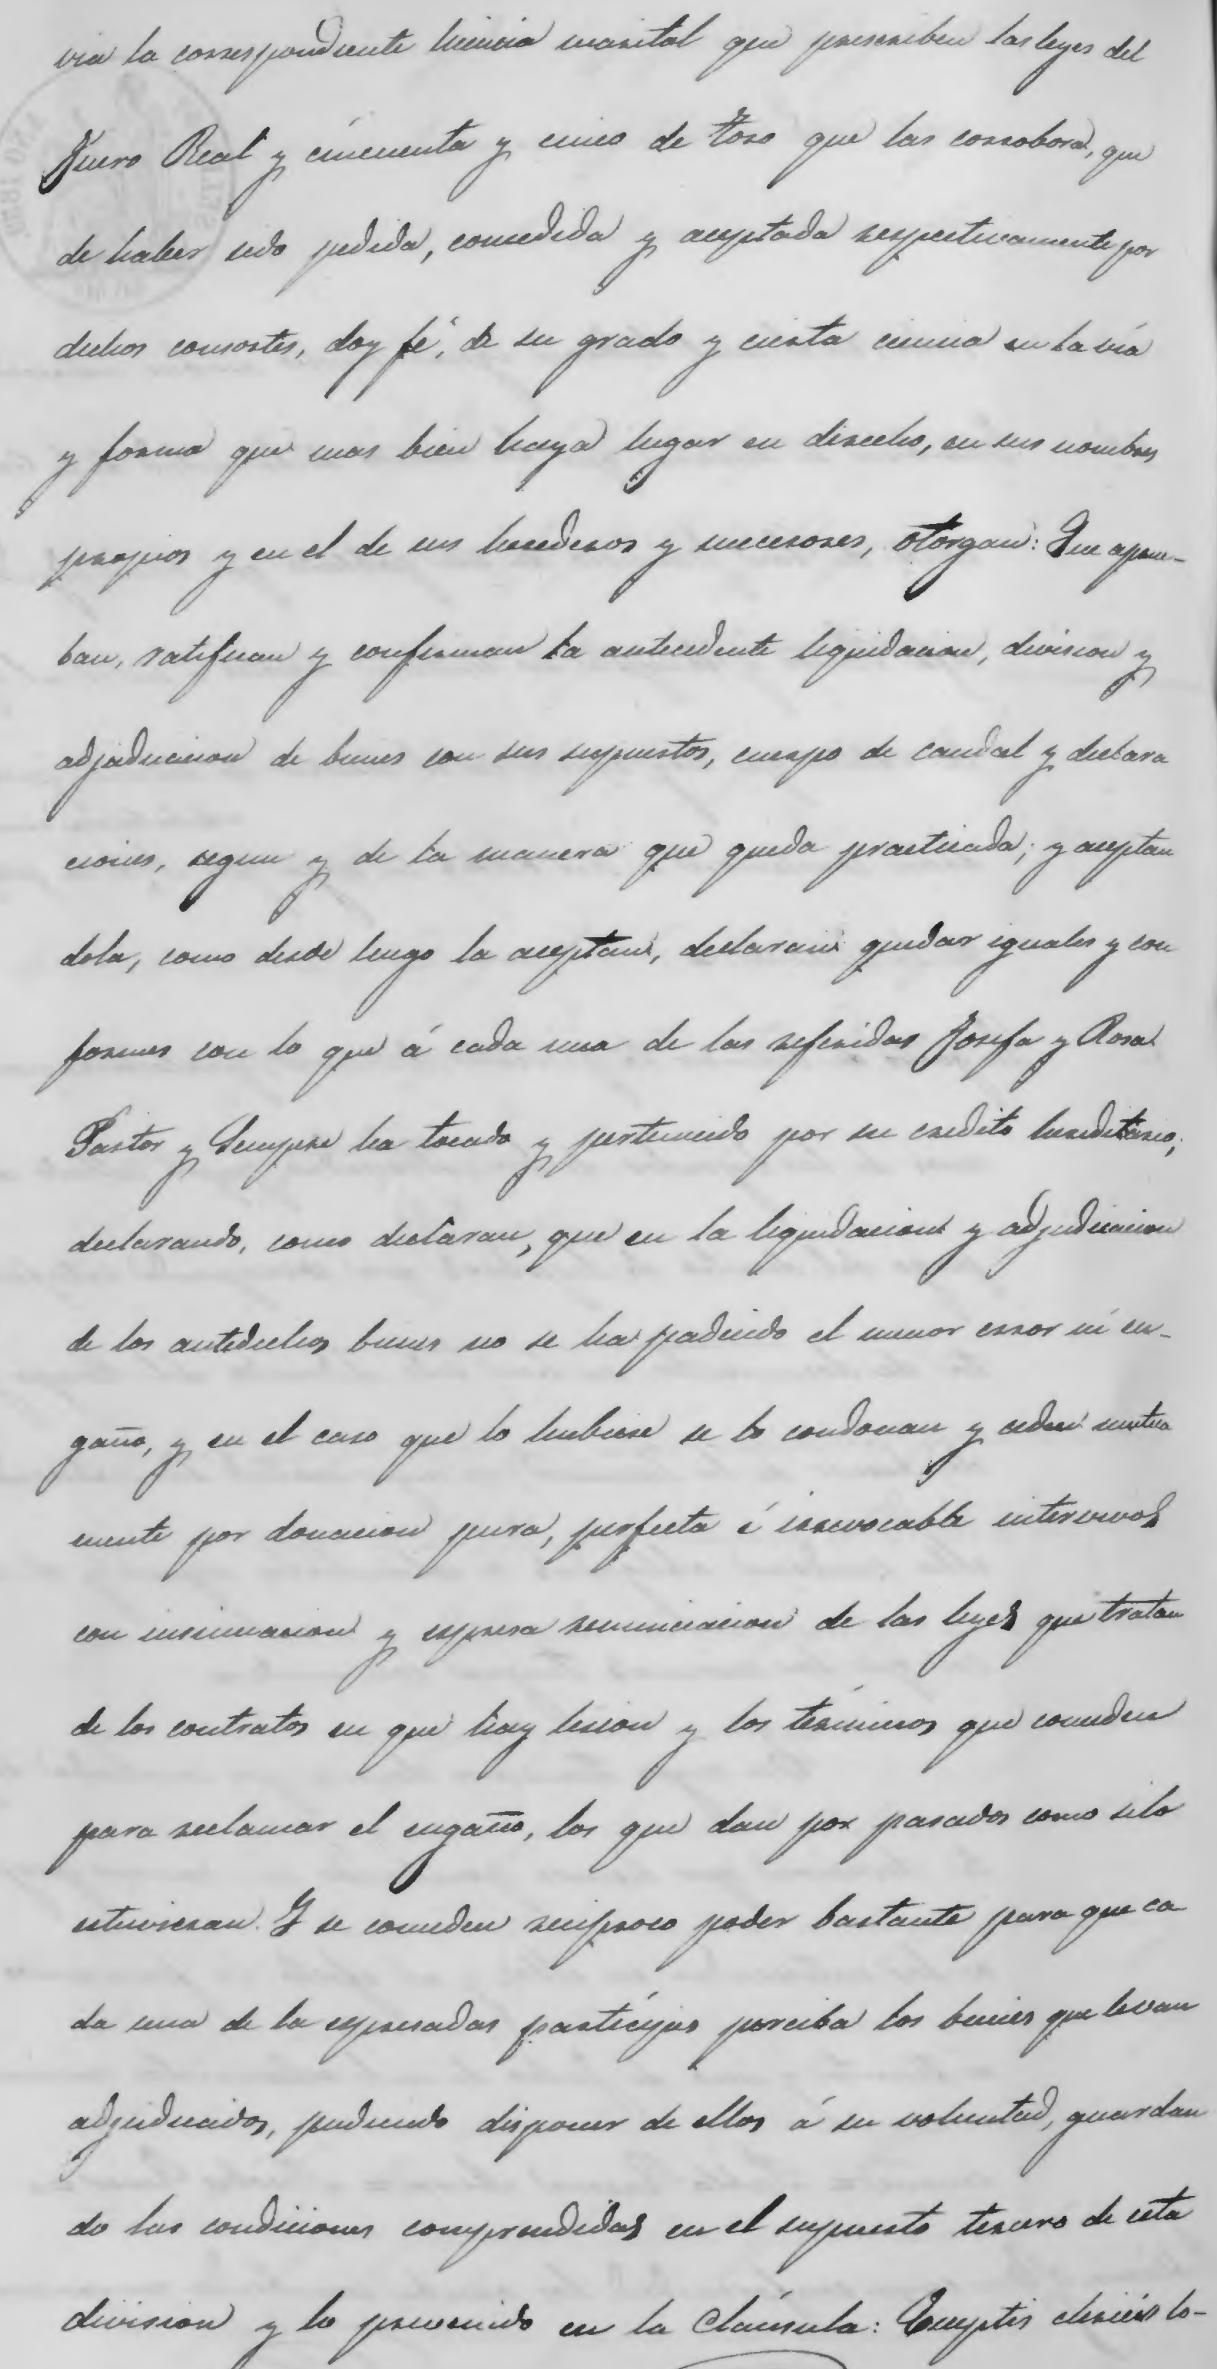 via la correspondiente licencia marital que prescriben las leyes del
Fuero Real y cincuenta y cinco de Toro que las corrobora, que
de haber sido pedida, concedida y aceptada respectivamente por
dichos consortes, doy fé, de su grado y cierta ciencia en la via
y forma que mas bien haya lugar en derecho, en sus nombres
propios y en el de sus herederos y sucesores, otorgan: Que aprue-
ban, ratifican y confirman la antecedente liquidacion, division y
adjudicacion de bienes con sus supuestos, cuerpo de caudal y declara
ciones, segun y de la manera que queda practicada; y aceptan
dola, como desde luego la aceptan, declaran quedar iguales y con
formes con lo que á cada una de las referidas Josefa y Rosa
Pastor y Sempere ha tocado y pertenecido por su credito hereditario;
declarando, como declaran, que en la liquidacion y adjudicacion
de los antedichos bienes no se ha padecido el menor error ni en-
gaño, y en el caso que lo hubiese se lo condonan y ceden mutua
mente por donacion pura, perfecta é irrevocable intervivos
con insinuacion y espresa renunciacion de las leyes que tratan
de los contratos en que hay lesion y los términos que conceden
para reclamar el engaño, los que dan por pasados como silo
estuvieran. Y se conceden reciproco poder bastante para que ca
da una de la espresadas partícipes perciba los bienes que levan
adjudicados, pudiendo disponer de ellos á su voluntad, guardan
do las condiciones comprendidas en el supuesto tercero de esta
division y lo prevenido en la Cláusula: Exceptis clericis lo-